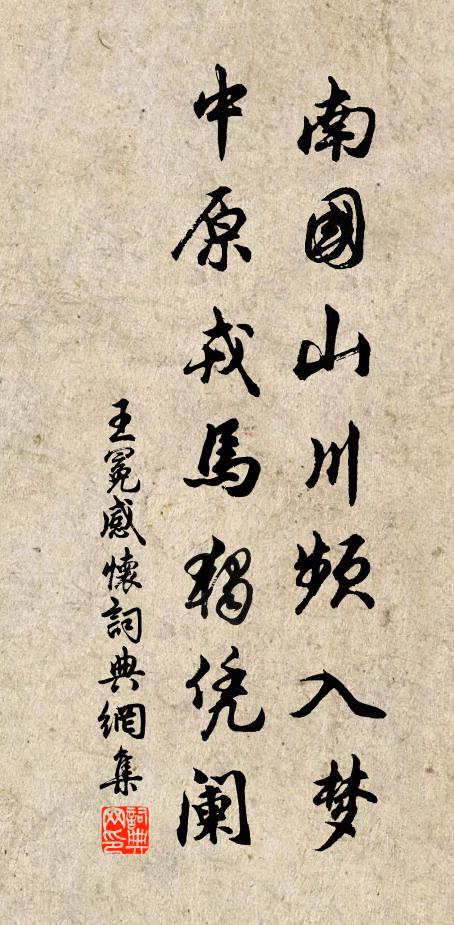 南國山川頻入梦
中原戎馬獨凭阑
王冕感懷詞典網集
詞典網印